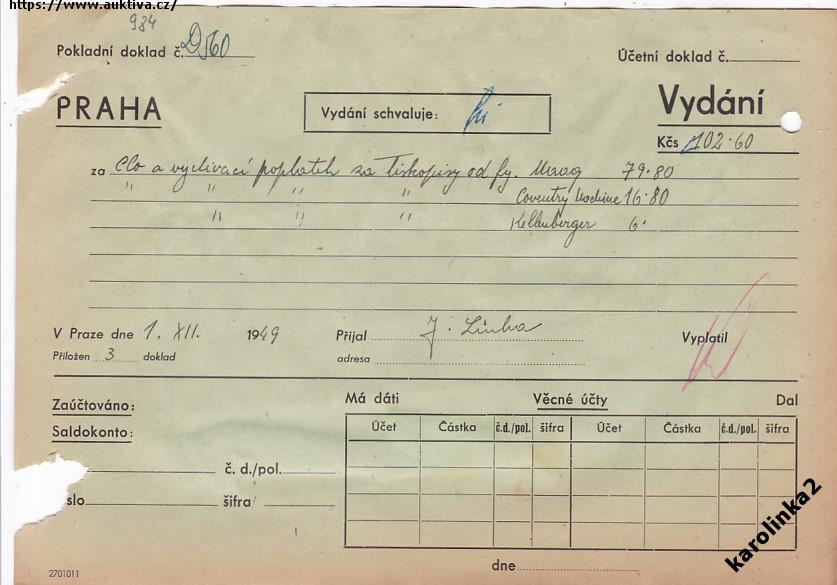 https://www.auktiva.cz/
984
Pokladní doklad č. 2560
Účetní doklad č.
PRAHA
Vydání schvaluje:
Vydání
Kčs 102·60
za Clo a vyclívací poplatek za tiskopisy od fy. Maag 79·80
" " " " Coventry Machine 16·80
" " " Kellenberger 6·
V Praze dne 1. XII. 1949
Přijal J. Linha
Vyplatil
Přiložen 3 doklad
adresa
Zaúčtováno:
Má dáti Věcné účty Dal
Saldokonto:
Účet Částka č.d./pol. šifra Účet Částka č.d./pol. šifra
č. d./pol.
slo
šifra
dne
2701011
karolinka2